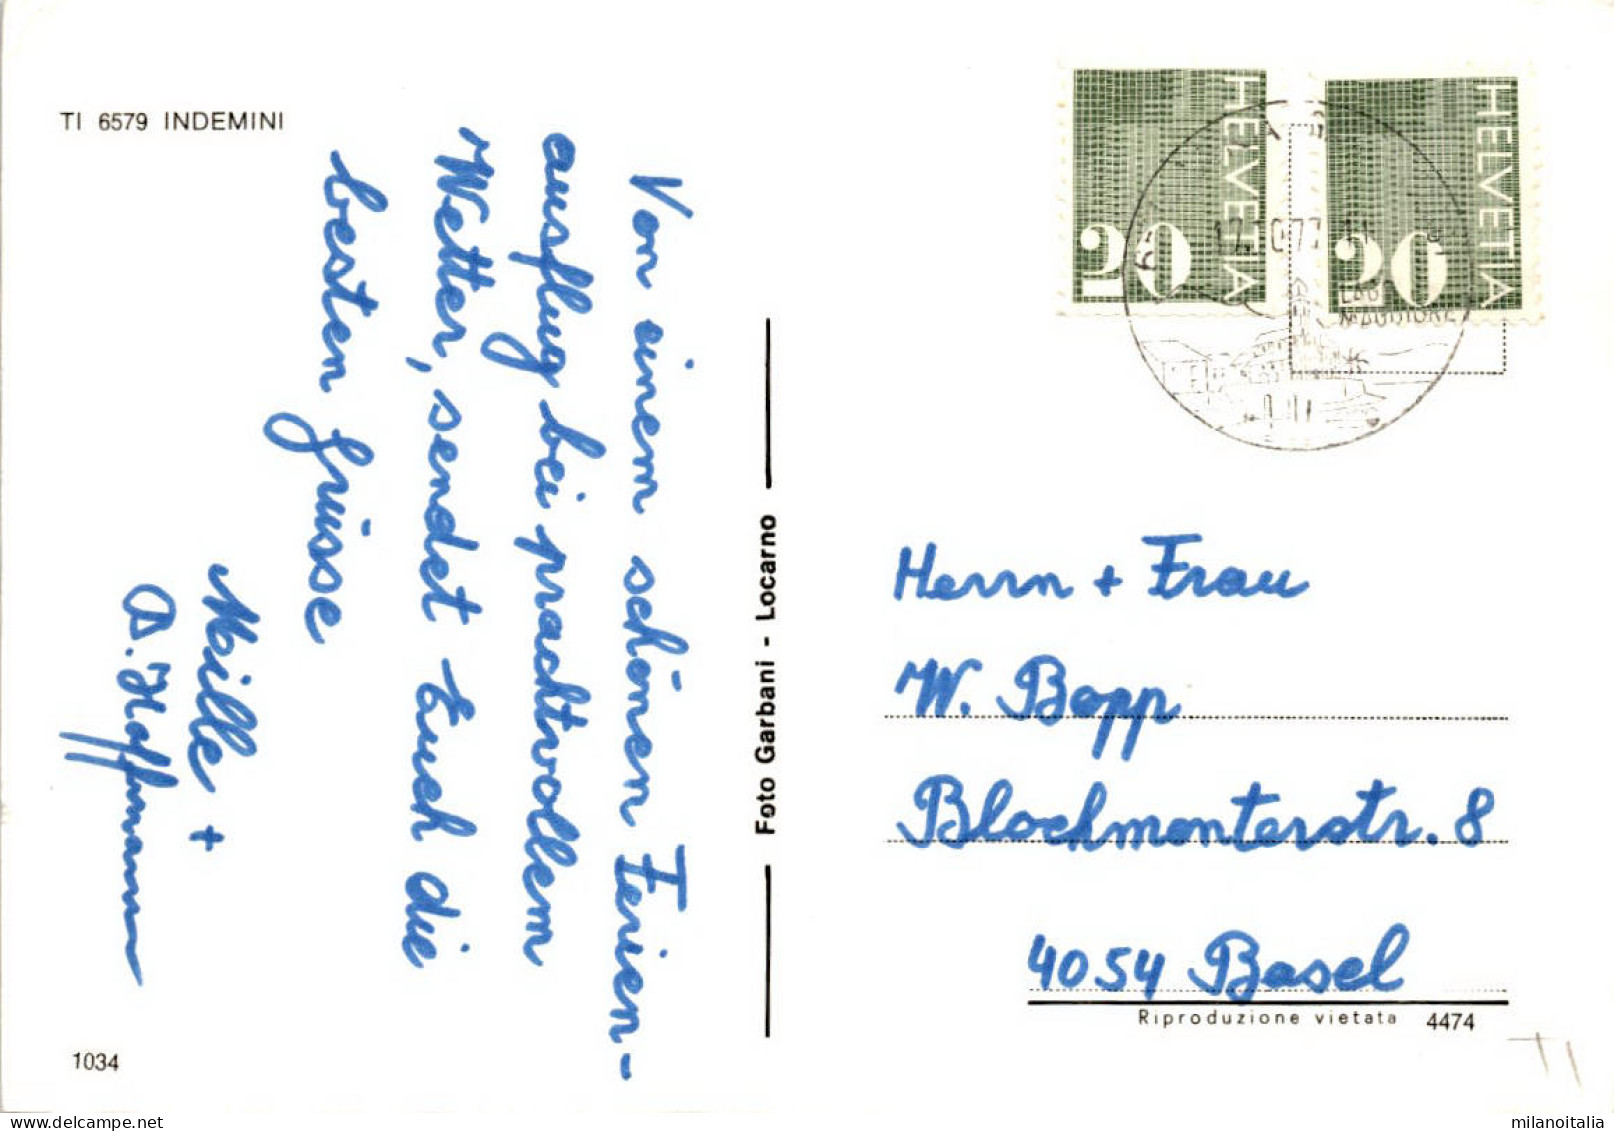 TI 6579 INDEMINI
Von einem schönen Ferien-
ausflug bei prachtvollem
Wetter, sendet Euch die
besten Grüsse
+
A. Hoffmann
1034
Foto Garbani - Locarno
HELVETIA
20
HELVETIA
20
LAGO
MAGGIORE
Herrn + Frau
W. Bopp
Blochmonterstr. 8
4054 Basel
Riproduzione vietata 4474
TI
milanoitalia